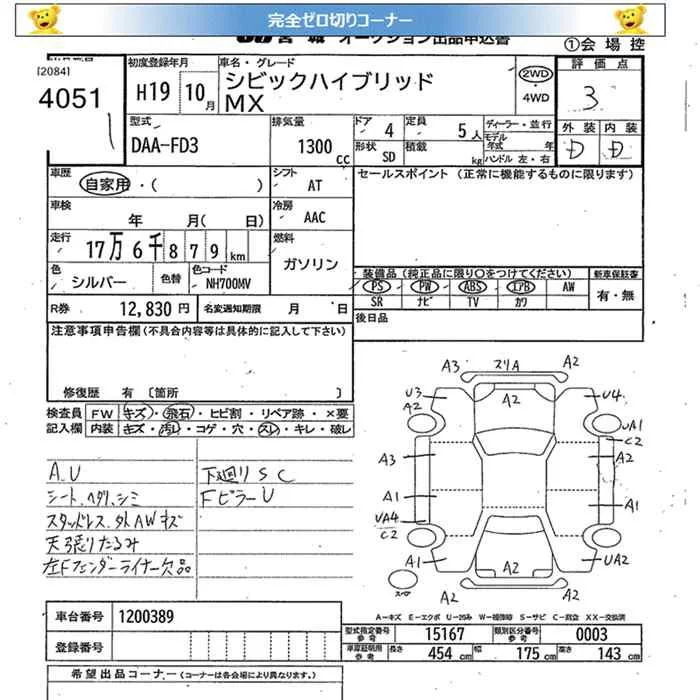 完全ゼロ切りコーナー
宮城 オークション出品申込書
①会場控
[2084]
4051
初度登録年月
H19 10月
車名・グレード
シビックハイブリッド
MX
2WD
・4WD
評価点
3
外装 内装
D D
型式
DAA-FD3
排気量
1300 CC
ドア 4
形状 SD
定員 5人
積載 kg
ディーラー・並行
モデル年式 年
ハンドル 左・右
車歴
自家用・( )
シフト
AT
セールスポイント (正常に機能するものに限ります)
車検
年 月( 日)
冷房
AAC
走行
17万6千879km
燃料
ガソリン
色
シルバー
色替
色コード
NH700MV
装備品 (純正品に限り○をつけてください)
PS PW ABS エアB AW
SR ナビ TV カワ
新車保証書
有・無
R券 12,830円
名変通知期限 月 日
後日品
注意事項申告欄(不具合内容等は具体的に記入して下さい)
修復歴 有 〔箇所 〕
検査員 FW キズ・飛石・ヒビ割・リペア跡・×要
記入欄 内装 キズ・汚レ・コゲ・穴・スレ・キレ・破レ
A.U
シート、ヘタリ、シミ
スタッドレス、外AWキズ
天張りたるみ
左Fフェンダーライナー欠品
下廻りSC
FピラーU
A3 スリA A2
U3
A2
A2
U4
UA1
C2
A2
A3
A1
A1
UA4
C2
A1
A2
UA2
A2 A2
スペア
A―キズ E―エクボ U―凹み W―補修跡 S―サビ C―腐食 XX―交換済
車台番号 1200389
登録番号
型式指定番号
参考
15167
類別区分番号
参考
0003
車庫証明用
参考
長さ 454 cm 幅 175 cm 高さ 143 cm
希望出品コーナー (コーナーは各会場により異なります。)